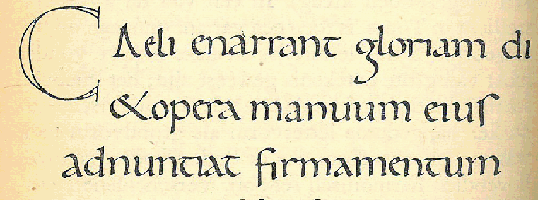 CAeli enarrant gloriam di
&opera manuum eius
adnuntiat firmamentum